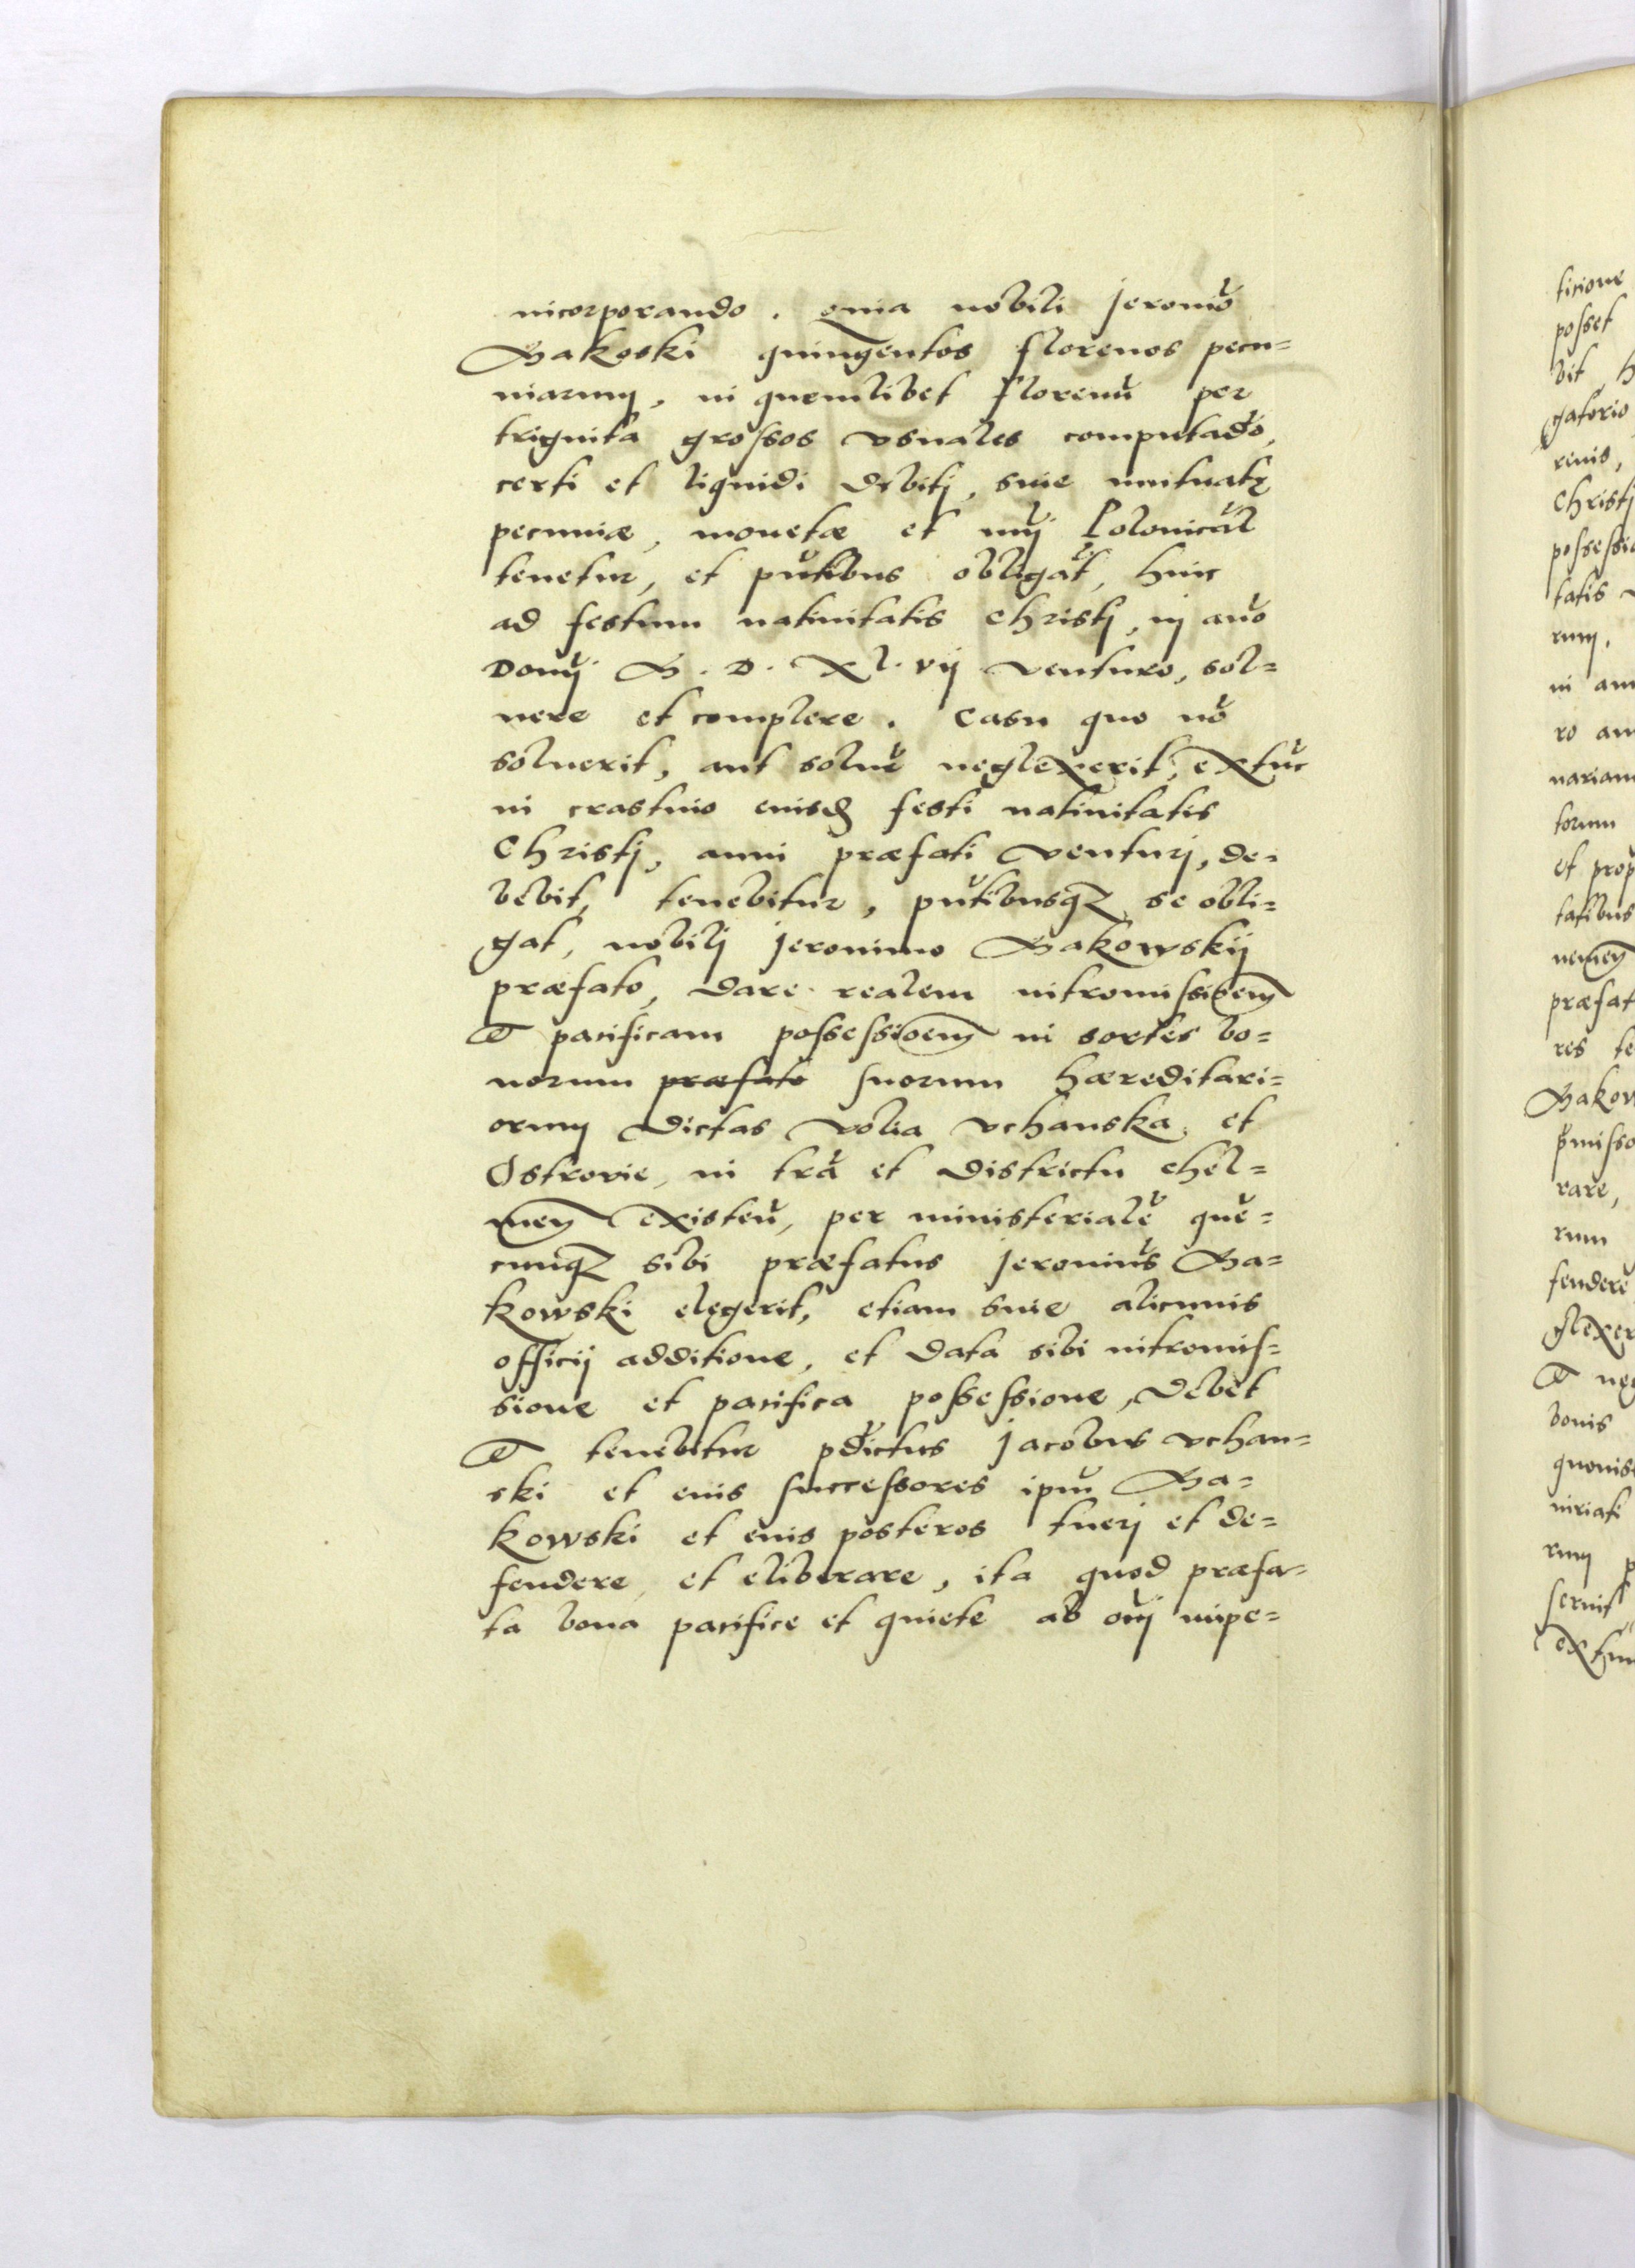 incorporando. quia nobili Jeronimo
Makoski quingentos florenos pecu=
niarum, in quemlibet florenũ per
triginta grossos vsuales computãdo,
certi et liquidi debitj, siue mutuatę
pecuniæ, monetæ et nũij Polonicãl
tenetur, et pñtibus obligat, hinc
ad festum natiuitatis Christj, in ãno
Domĩ M. D. XL. vij venturo, sol=
uere et complere. Casu quo nõ
soluerit, aut soluẽ neglexerit, extũc
in crastino eiusd festi natiuitatis
Christj, anni præfati venturj, de=
bebit, tenebitur, pñtibusq se obli=
gat, nobilj Jeronimo Makowskij
præfato, dare realem intromissioem
et pacificam possessioem in sortes bo=
norum præfato suorum hæreditari=
orum dictas Volia Vchanska et
Ostrovie, in trã et districtu Chel=
men existeñ, per ministerialẽ quẽ=
cunq sibi præfatus Jeronimũs Ma=
kowski elegerit, etiam siue alicuius
officij additione, et data sibi intromis=
sione et pacifica possessione, debet
et tenebitur pdictus Jacobus Vchan=
ski et eius successores ipm̃ Ma=
kowski et eius posteros tuerj et de=
fendere, et eliberare, ita quod præfa=
ta bona pacifice et quiete ab oĩ impe=
ticione
posset
bit
gatorio
renis,
Christj
possessio
tatis
rum.
in ann
ro an
nariam
torum
et prop
tatibus
nemen
præfat
res te
Makow
pmisso
rare,
rum
fendere
glexer
et neg
bonis
quouis
iuriati
rum p
seruit
extun